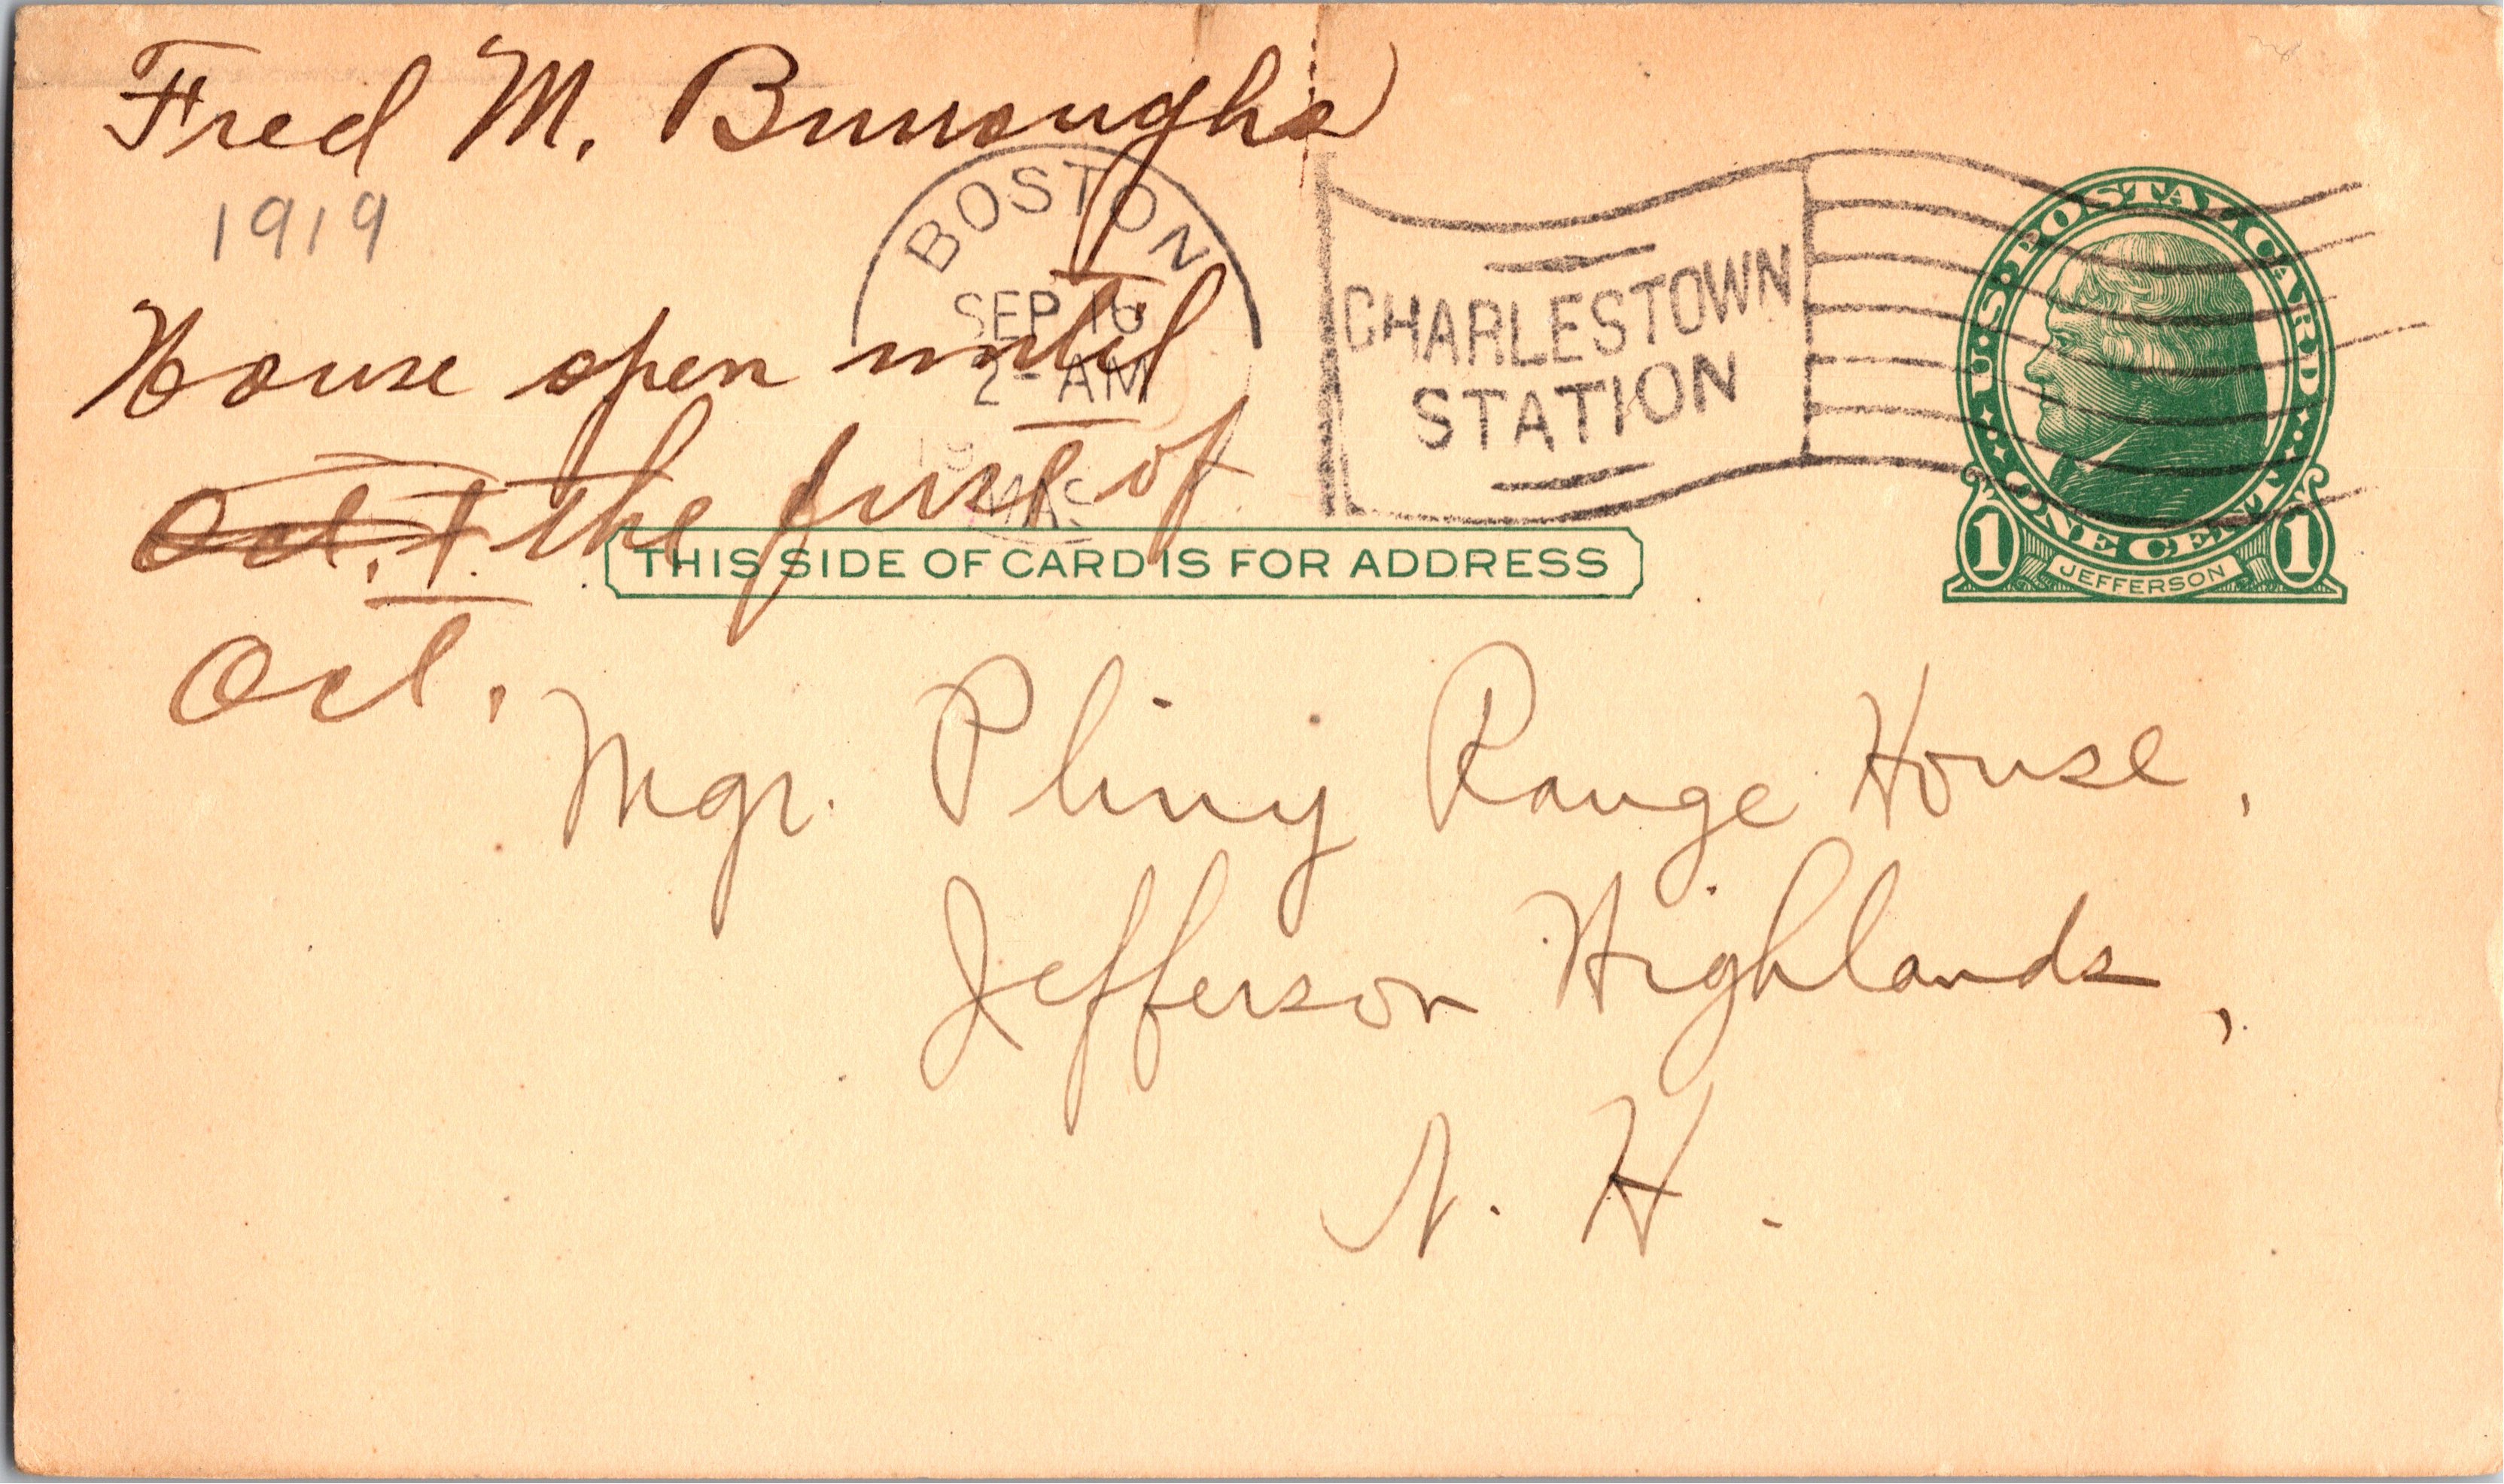 Fred M. Burroughs
1919
BOSTON
SEP 16
2 - AM
19
MAS
CHARLESTOWN
STATION
U.S. POSTAL CARD
ONE CENT
1 1
JEFFERSON
House open until
Oct. 1 the first of
Oct.
THIS SIDE OF CARD IS FOR ADDRESS
Mgr. Pliny Range House,
Jefferson Highlands,
N. H.